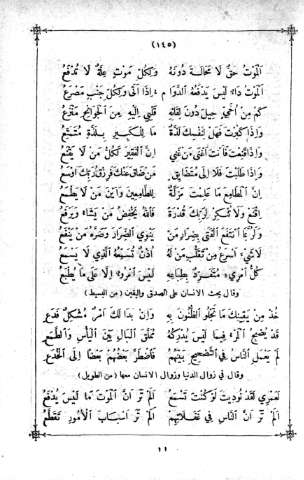 (١٤٥)
الموت حق لا محالة دونه ولكل موت علة لا تدفع
الموت داء ليس يدفعه الدواء إذا أتى ولكل جنب مصرع
كم من حيل دون لقائه قلبي إليه من الجوانح
وإذا كبرت فهل لنفسك لذة ما للكبير بلذة متمتع
وإذا قنعت فأنت أغنى من غنى إن الفقير لكل من لا يقنع
وإذا طلبت فلا إلى متضايق من ضاق عنك فرزق ربك أوسع
إن المطامع ما علمت مزلة للطامعين وأين من لا يطمع
إقنع ولا تنكر لربك قدرة فالله يخفض من يشاء ويرفع
ولربما انتفع الفتى بضرار من ينوي الضرار وضره من ينفع
لا شيء أسرع من تقلب من له أذن تسمعه الذي لا يسمع
كل امرئ متفرد بطباعه ليس امرؤ إلا على ما يطبع
وقال يحث الانسان على الصدق واليقين (من البسيط)
خذ من يقينك ما تجلو الظنون به وإن بدا لك أمر مشكل فدع
قد يصبح المرء فيما ليس يدركه مملق البال بين اليأس والطمع
لم يعمل الناس في التصحيح بينهم فاضطر بعضهم بعضا إلى الخدع
وقال في زوال الدنيا وزوال الانسان معها (من الطويل)
لعمري لقد نوديت لو كنت تسمع ألم تر أن الموت ما ليس يدفع
ألم تر أن الناس في غفلاتهم ألم تر أسباب الأمور تقطع